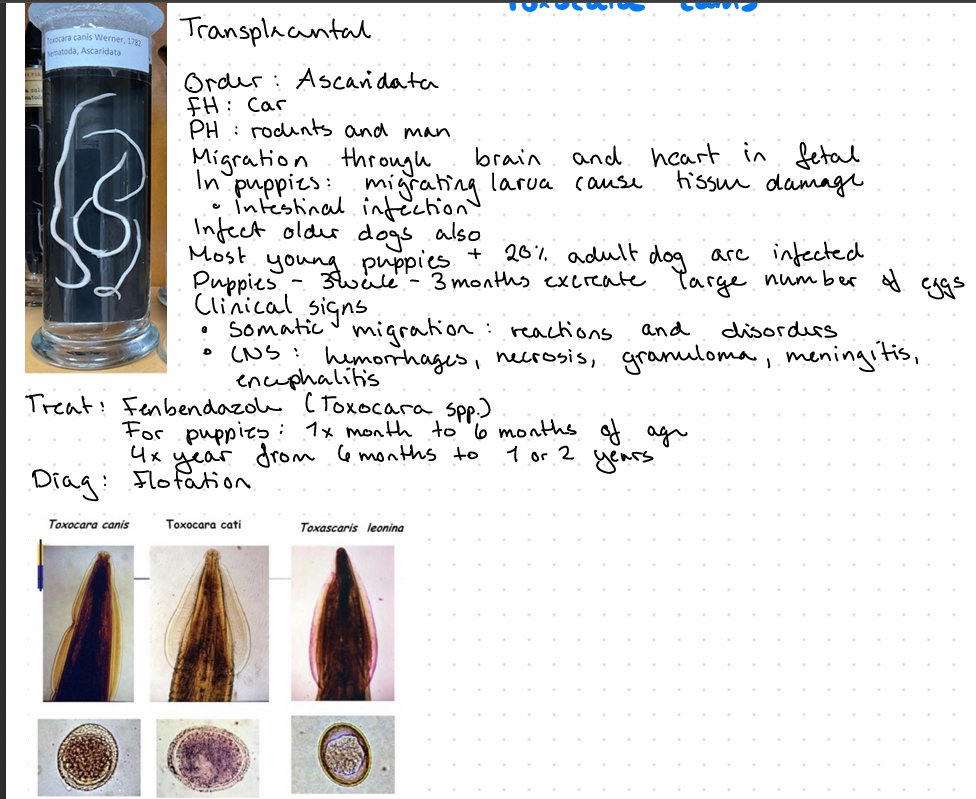 Toxocara canis
Toxocara canis Werner, 1782
Nematoda, Ascaridata
Transplacantal
Order: Ascaridata
FH: Car
PH: rodents and man
Migration through brain and heart in fetal
In puppies: migrating larva cause tissue damage
• Intestinal infection
Infect older dogs also
Most young puppies + 20% adult dog are infected
Puppies - 3 week - 3 months excreate large number of eggs
Clinical signs
• Somatic migration: reactions and disorders
• CNS: hemorrhages, necrosis, granuloma, meningitis,
encephalitis
Treat: Fenbendazole (Toxocara spp.)
For puppies: 1x month to 6 months of age
4x year from 6 months to 1 or 2 years
Diag: Flotation
Toxocara canis Toxocara cati Toxascaris leonina